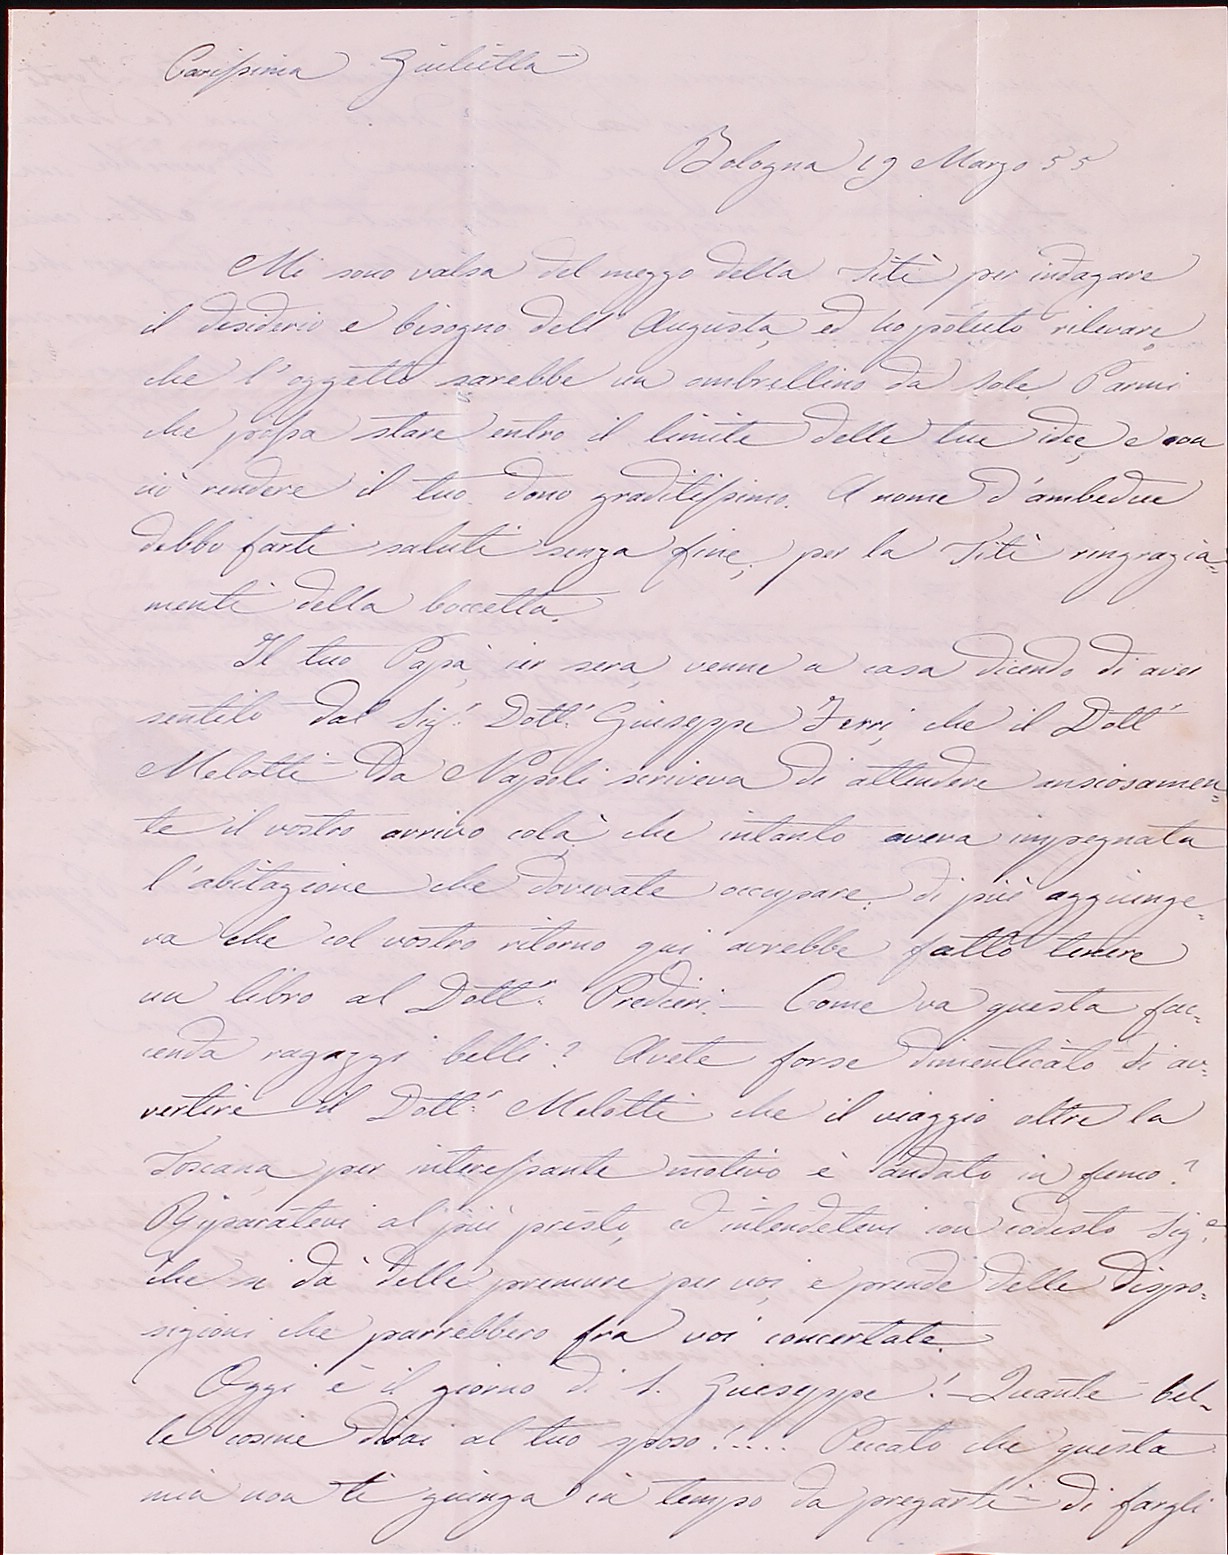 Carissima Giulietta
Bologna 19 Marzo 55
Mi sono valsa del mezzo della Titì per indagare
il desiderio e bisogno dell'Augusta, ed ho potuto rilevare,
che l'oggetto sarebbe un ombrellino da sole. Parmi
che possa stare entro il limite delle tue idee, e con
ciò rendere il tuo dono graditissimo. A nome d'ambedue
debbo farti saluti senza fine, per la Titì ringrazia=
menti della boccetta.
Il tuo Papà, ier sera, venne a casa dicendo di aver
sentito dal Sig.r Dott.r Giuseppe Ferri, che il Dott.r
Melotti da Napoli scriveva di attendere ansiosamen=
te il vostro arrivo colà, che intanto aveva impegnata
l'abitazione che dovevate occupare: di più aggiunge=
va che col vostro ritorno qui avrebbe fatto tenere
un libro al Dott.r Predieri. — Come va questa fac=
cenda ragazzi belli? Avete forse dimenticato di av=
vertire il Dott.r Melotti che il viaggio oltre la
Toscana per interessante motivo è andato in fumo?
Riparatevi al più presto, ed intendetevi con codesto Sig.e
che si dà delle premure per voi, e prende delle dispo=
sizioni che parrebbero fra voi concertate.
Oggi è il giorno di S. Giuseppe! — Quante bel=
le cosine dirai al tuo sposo!.... Peccato che questa
mia non ti giunga in tempo da pregarti di fargli